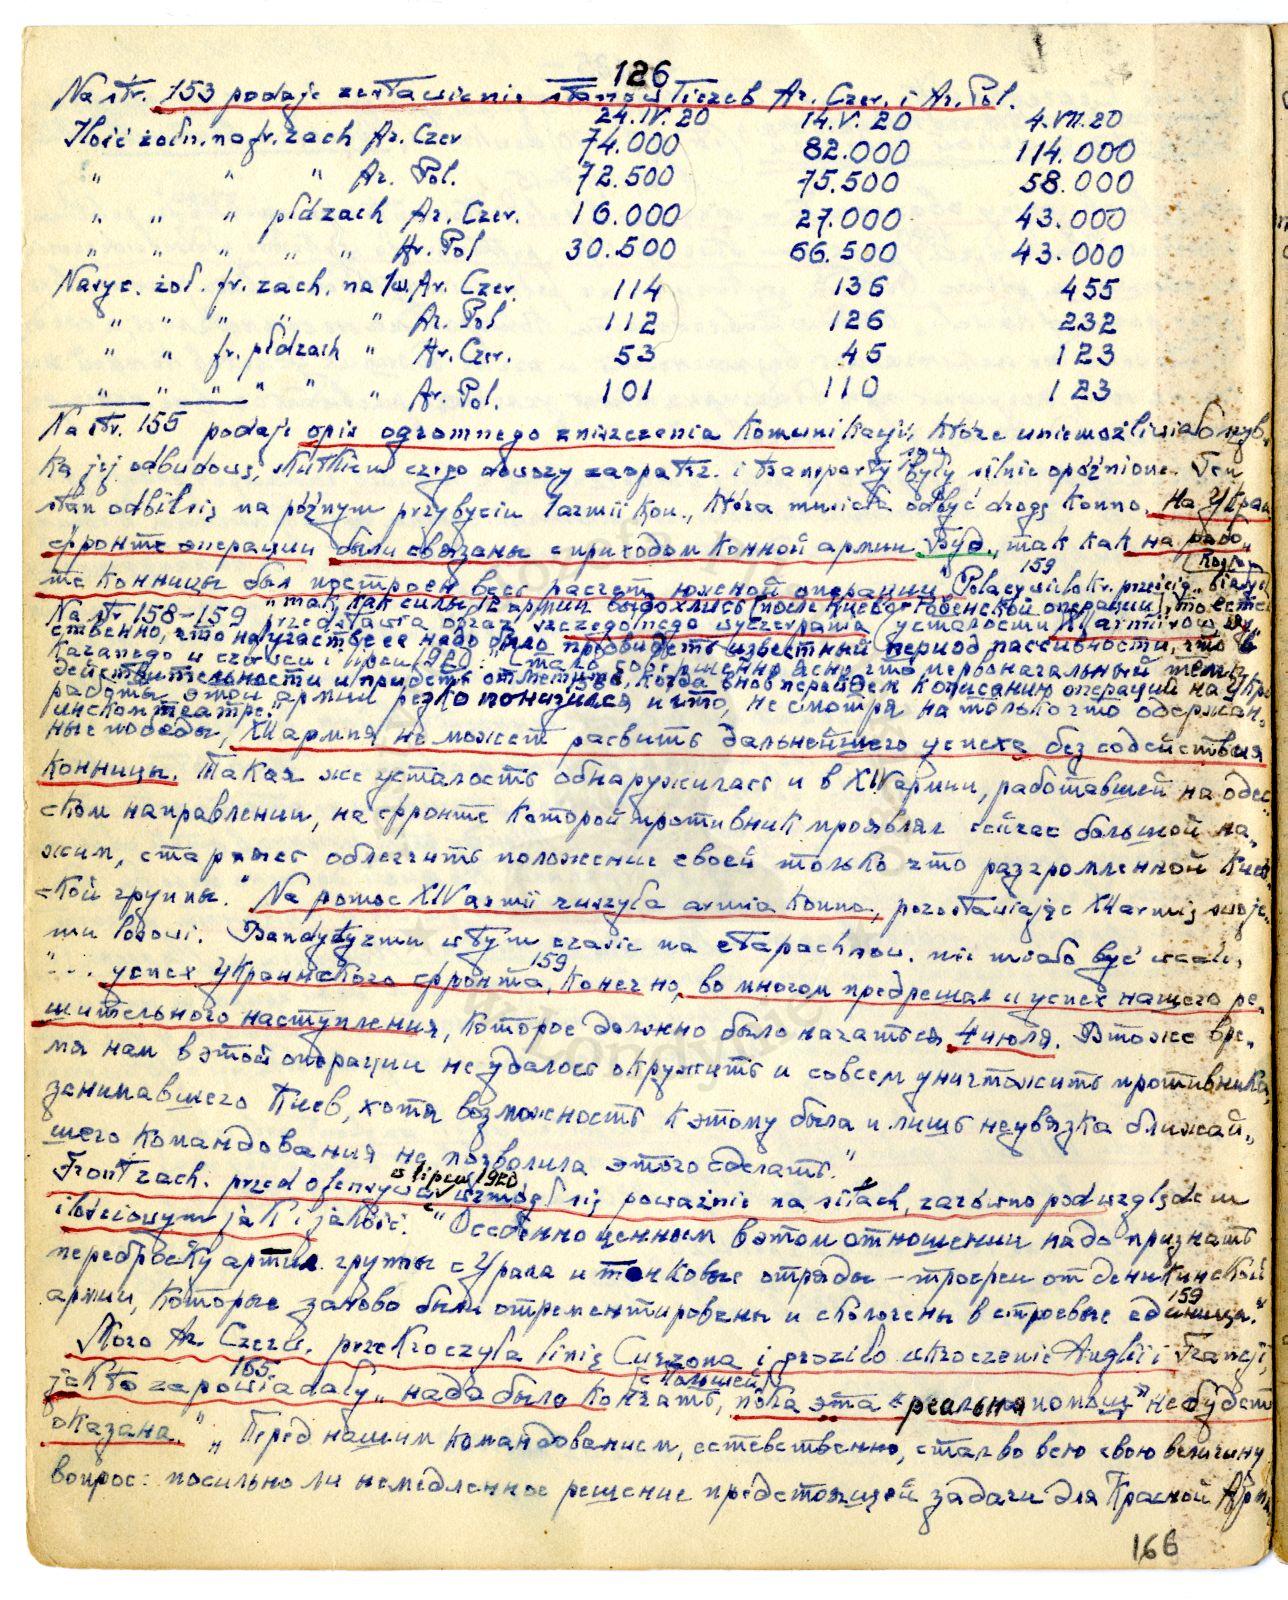 126
Na str. 153 podaje zestawienie stanów liczeb Ar. Czer. i Ar. Pol.
24.IV.20 14.V.20 4.VII.20
Ilość żołn. na fr. zach Ar. Czer 74.000 82.000 114.000
" " " Ar. Pol. 72.500 75.500 58.000
" " " płdzach Ar. Czer. 16.000 27.000 43.000
" " " " " Ar. Pol 30.500 66.500 43.000
Nasyc. żoł. fr. zach. na 1w. Ar. Czer. 114 136 455
" " " " " Ar. Pol 112 126 232
" " fr. płdzach " Ar. Czer. 53 45 123
" " " " " " Ar. Pol. 101 110 123
Na str. 155 podaje opis ogromnego zniszczenia komunikacji, które uniemożliwiało szyb„
ką jej odbudowę, skutkiem czego dowozy zaopatrz. i transporty były silnie opóźnione. Ten
stan odbił się na późnym przybyciu 1 armii kon., która musiała odbyć drogę konno. На Укра
фронте операции были связаны с приходом конной армии Буд., так как на рабо„
159
те конницы был построен весь расчет южной операции" Polacy
Na str 158-159 "так как силы 12 армии выдохлись (после Киево-Ровенской операции), то есте
przedstawia obraz szczególnego wyczerpania (усталости) XII armii
ственно, что на участке ее надо было предвидеть известный период пассивности, что в
kazanego w czerwcu i lipcu 1920: "Стало совершенно ясно, что первоначальный темп
действительности и придется отметить, когда вновь перейдем к описанию операций на укра
работы этой армии резко понизился и что, не смотря на только что одержан„
инском театре."
ные победы, XII армия не может развить дальнейшего успеха без содействия
конницы. Такая же усталость обнаружилась и в XIV армии, работавшей на одес„
ском направлении, на фронте которой противник проявлял сейчас большой на„
жим, стараясь облегчить положение своей только что разгромленной Киев„
ской группы." Na pomoc XIV armii ruszyła armia konna, pozostawiając XII armię swoje„
mu losowi. Bandytyzmu w tym czasie na etapach sow. nie miało być wcale,
159
"... успех Украинского фронта, конечно, во многом предрешал и успех нашего ре„
шительного наступления, которое должно было начаться 4 июля. В тоже вре„
мя нам в этой операции не удалось окружить и совсем уничтожить противника,
занимавшего Киев, хотя возможность к этому была и лишь неувязка ближай„
шего командования не позволила этого сделать."
w lipcu 1920
Front zach. przed ofensywą wzmógł się poważnie na siłach, zarówno pod względem
ilościowym jak i jakość. "Особенно ценным в этом отношении надо признать
переброску артил. группы с Урала и танковые отряды – трофеи от деникинской
армии, которые заново были отремонтированы и сколочены в строевые единицы."
159
Skoro Ar. Czerw. przekroczyła linię Curzona i groziło wkroczenie Anglii i Francji,
165 с Польшей
jak to zapowiadały „надо было кончать, пока эта "реальная помощь" не будет
оказана." „Перед нашим командованием, естественно, стал во всю свою величину
вопрос: посильно ли немедленное решение предстоящей задачи для Красной Арми
166